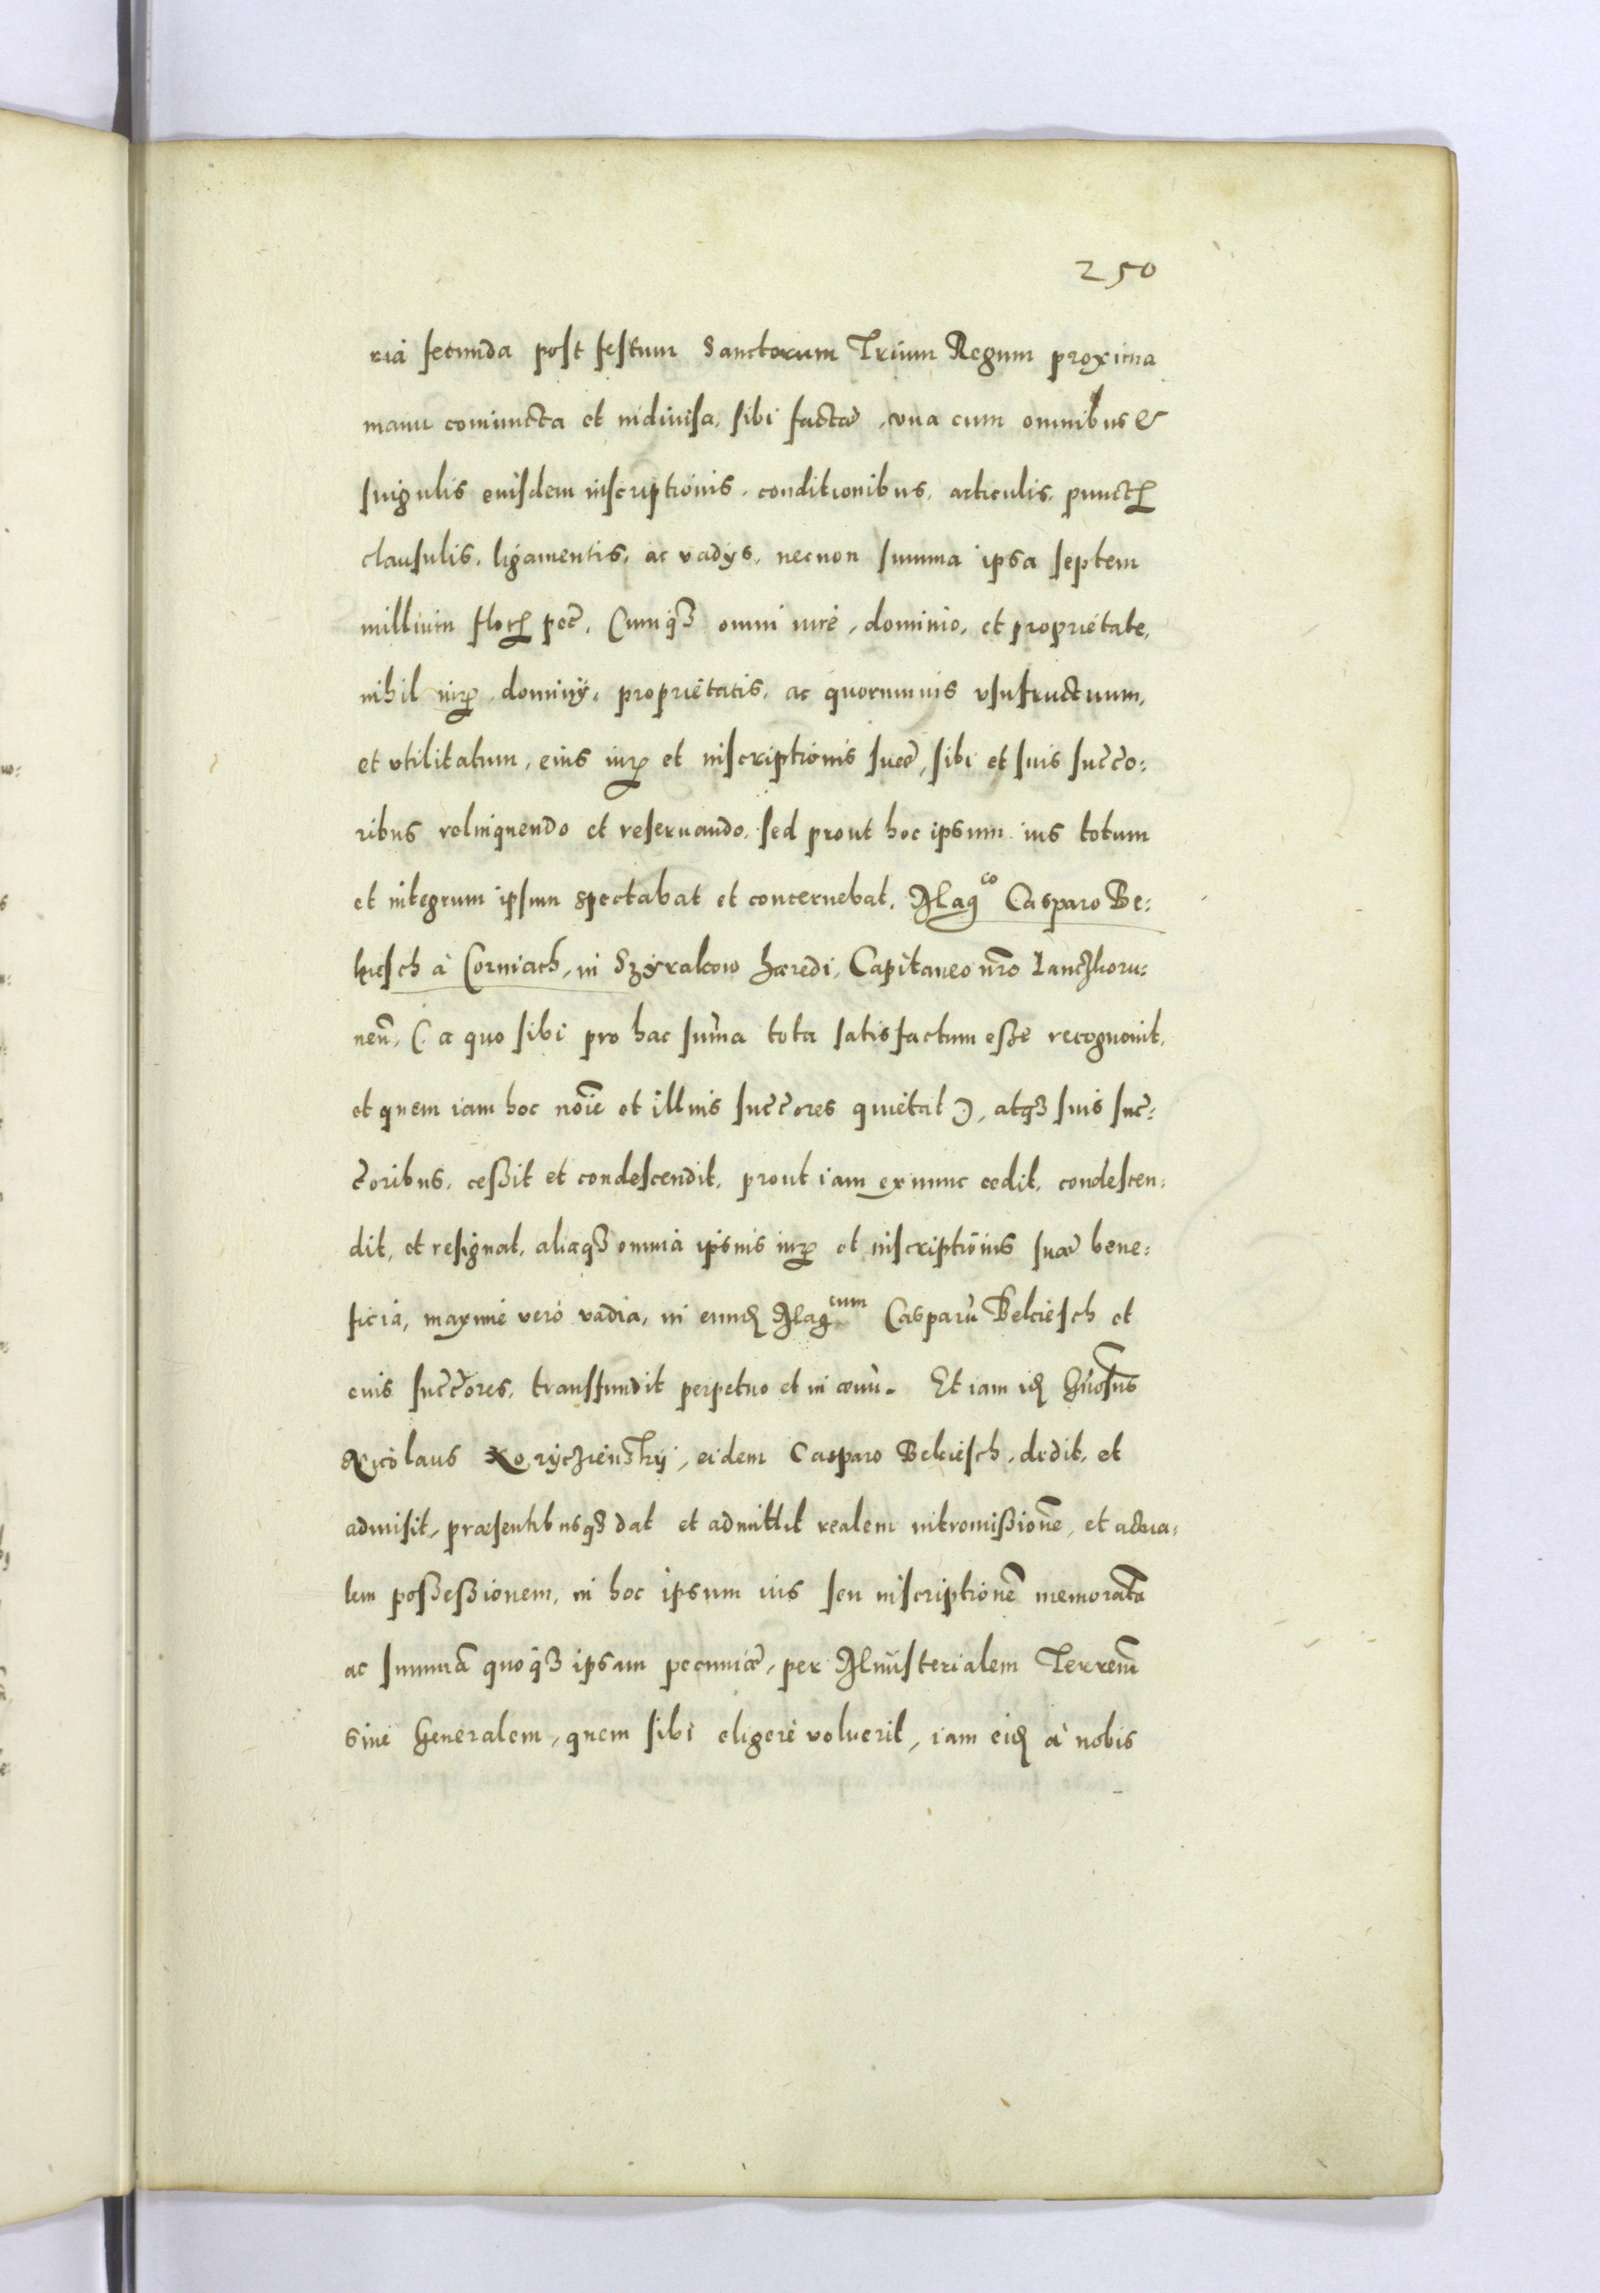 250
ria secunda post festum Sanctorum Trium Regum proxima
manu coniuncta et indiuisa, sibi factae, vna cum omnibus &
singulis eiusdem inscriptionis, conditionibus, articulis, punct
clausulis, ligamentis, ac vadys, necnon summa ipsa septem
millium flor pec̃, Cumq3 omni iure, dominio, et proprietate,
nihil iur dominij, proprietatis, ac quorumuis vsufructuum,
et vtilitatum, eius iur et inscriptionis suae, sibi et suis succ̃o:
ribus relinquendo et reseruando, sed prout hoc ipsum ius totum
et integrum ipsum spectabat et concernebat, Magco Casparo Be:
kiesch à Corniach, in Szÿralcow haeredi, Capitaneo nr̃o Lanczkoru:
neñ, (: a quo sibi pro hac sum̃a tota satisfactum eſse recognouit,
et quem iam hoc noĩe et illius succ̃ores quietat :), atq3 suis suc̃:
c̃oribus, ceſsit et condescendit, prout iam ex nunc cedit, condescen:
dit, et resignat, aliaq3 omnia ipsius iur et inscriptionis suae bene:
ficia, maxime vero vadia, in eund Magcum Casparũ Bekiesch et
euis succ̃ores, transfundit perpetuo et in aeuũ. Et iam id Gñosus
Nicolaus Koryczienskÿ, eidem Casparo Bekiesch, dedit, et
admisit, praesentibusq3 dat et admittit realem intromiſsionẽ, et actua:
lem poſseſsionem, in hoc ipsum ius seu inscriptionẽ memoratã
ac summã quoq3 ipsam pecuniae, per Ministerialem Terreñ
siue Generalem, quem sibi eligere voluerit, iam eid à nobis